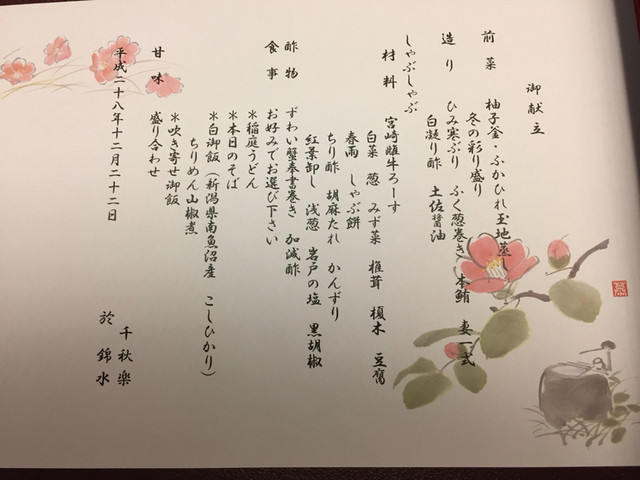 御献立
前菜　柚子釜・ふかひれ玉地蒸し
冬の彩り盛り
造り　ひみ寒ぶり　ふく葱巻き　本鮪　妻一式
白凝り酢　土佐醤油
しゃぶしゃぶ
材料　宮崎雌牛ろーす
白菜　葱　みず菜　椎茸　榎木　豆腐
春雨　しゃぶ餅
ちり酢　胡麻たれ　かんずり
紅葉卸し　浅葱　岩戸の塩　黒胡椒
酢物　ずわい蟹奉書巻き　加減酢
食事　お好みでお選び下さい
＊稲庭うどん
＊本日のそば
＊白御飯（新潟県南魚沼産　こしひかり）
ちりめん山椒煮
＊吹き寄せ御飯
甘味　盛り合わせ
平成二十八年十二月二十二日
千秋楽
於　錦水